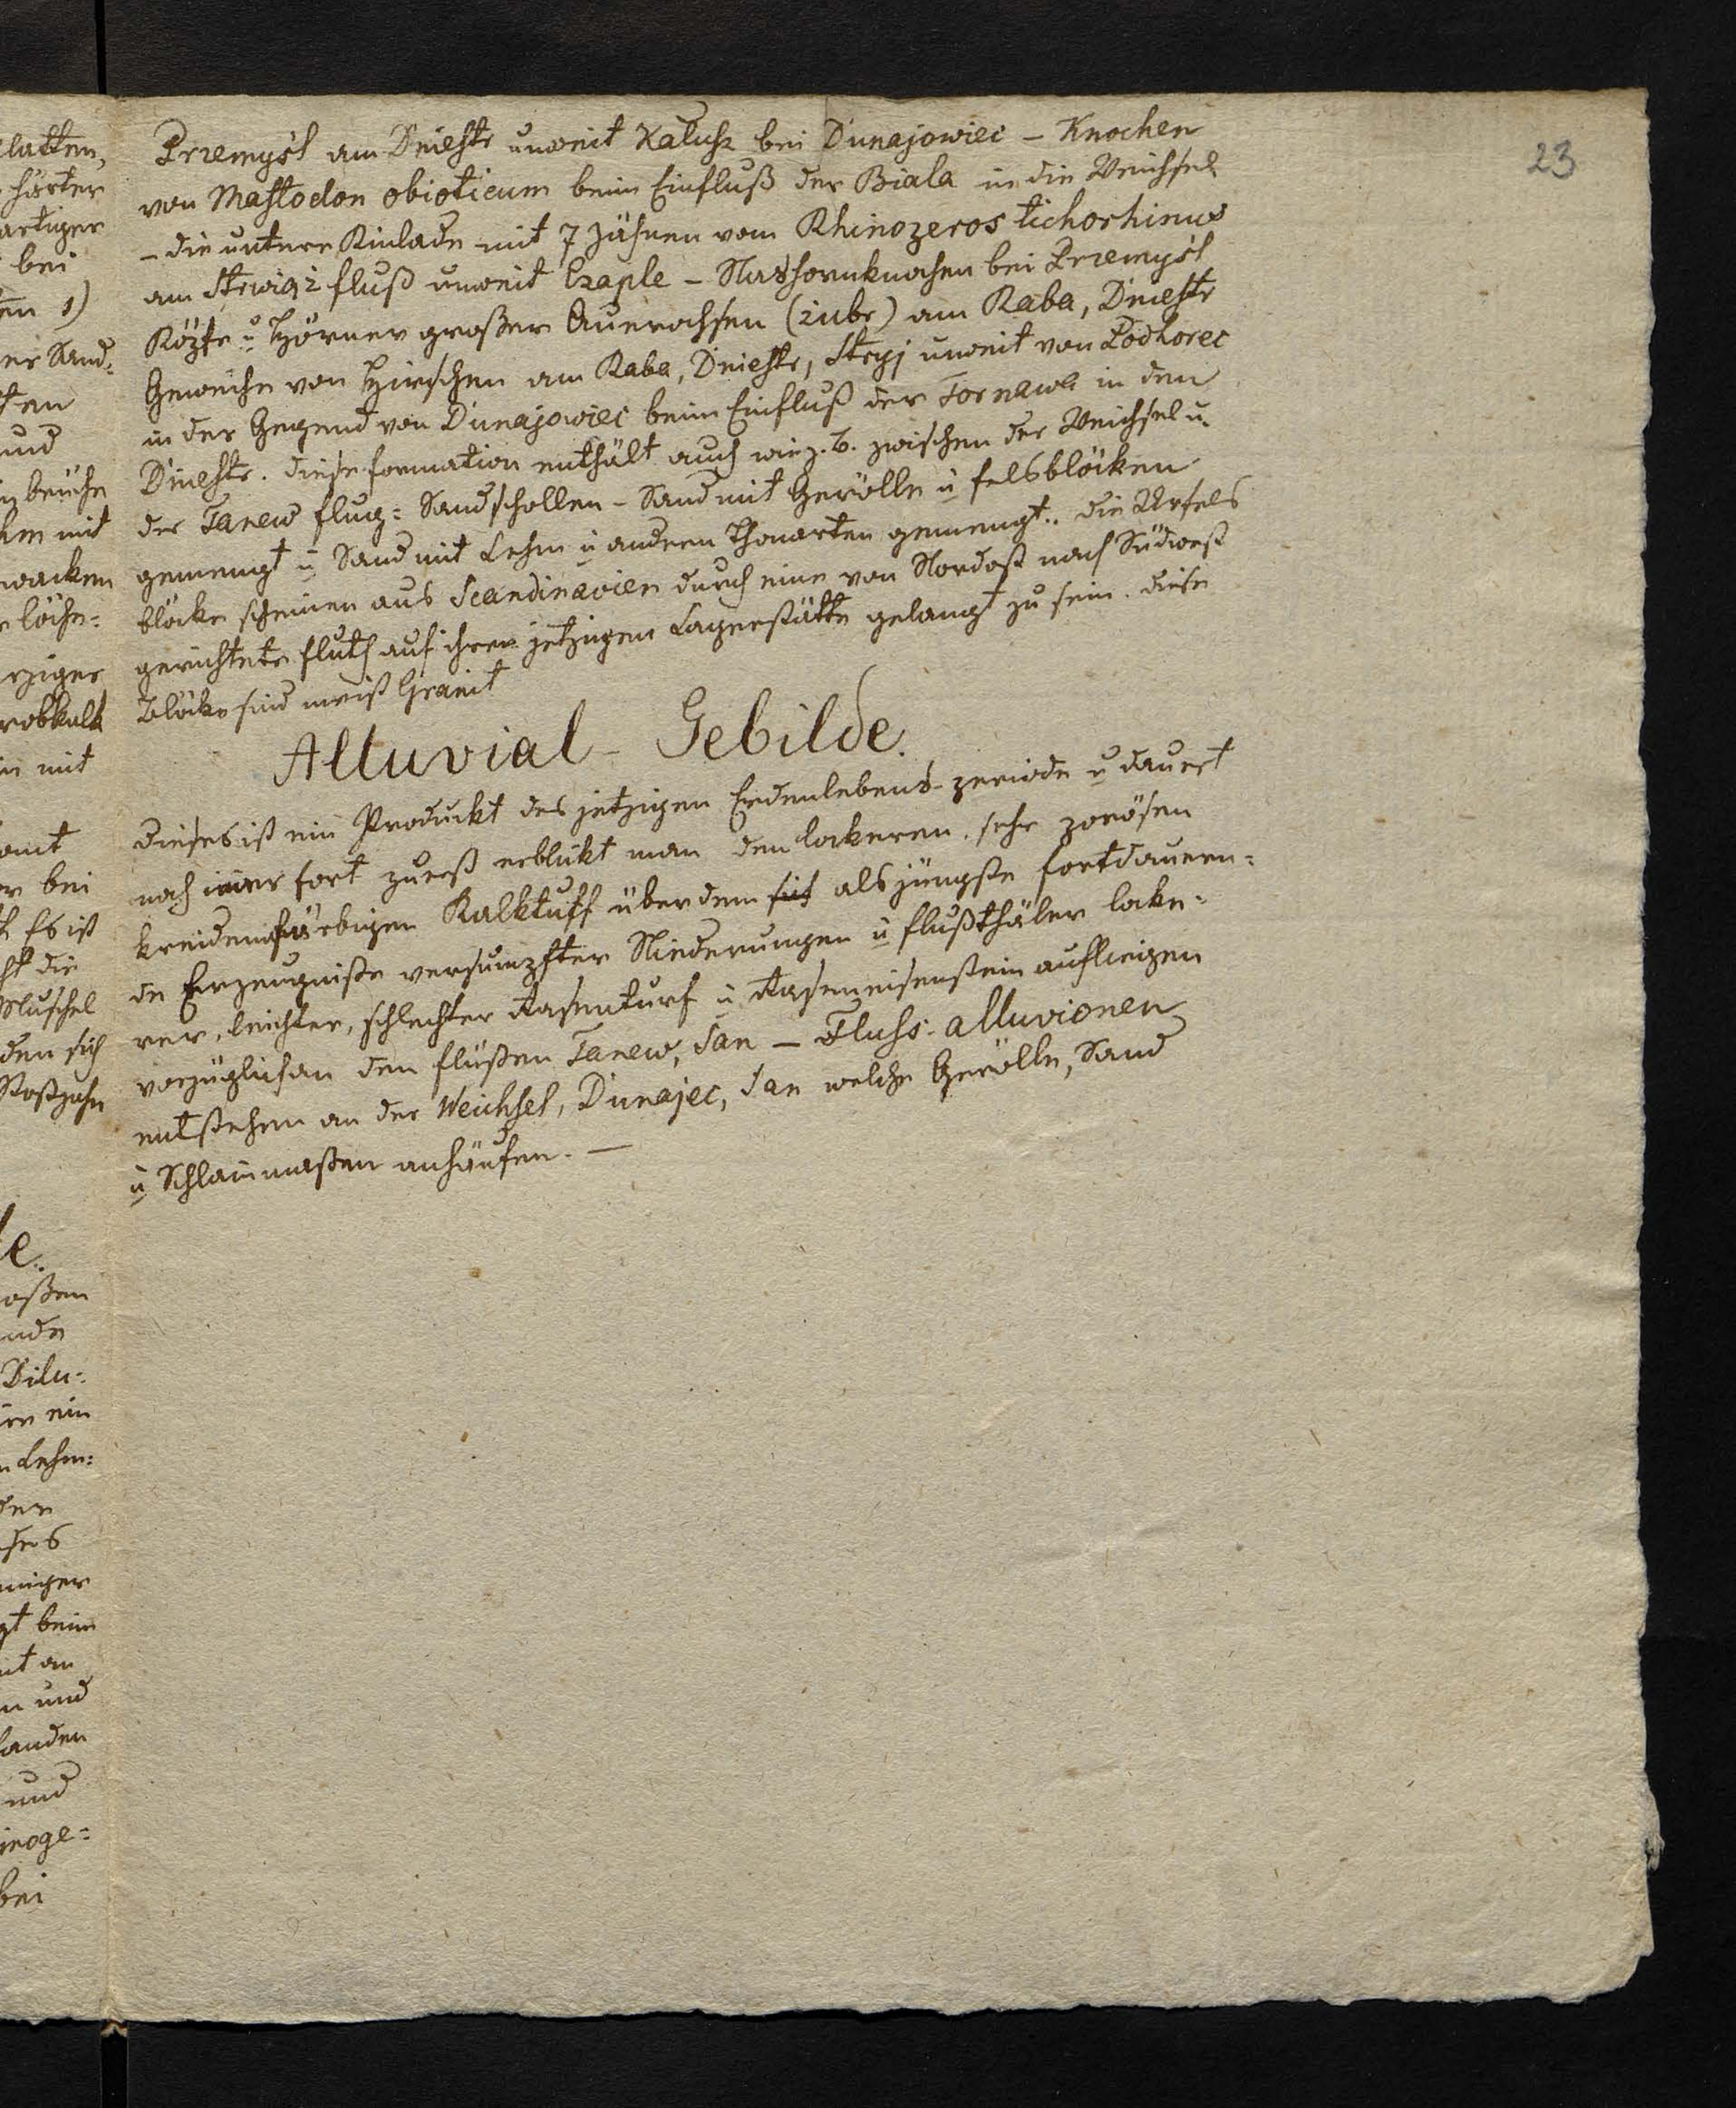 23
Przemyśl am Dniestr unweit Kałusz bei Dunajowiec – Knochen
von Mastodon obioticum beim Einfluß der Biala in die Weichsel
– die untere Kinlade mit 7 Zähnen vom Rhinozeros tichorhinus
am Strwiąż fluß unweit Czaple – Nashornknochen bei Przemyśl
Köpfe u Hörner großer Auerochsen (żubr) am Raba, Dniestr
Geweihe von Hirschen am Raba, Dniestr, Stryj unweit von Podhorec
in der Gegend von Dunajowiec beim Einfluß der Tornawa in den
Dniestr. diese formation enthält auch wie z. B. zwischen der Weichsel u.
der Tanew flug= Sandschollen – Sand mit Gerölle u felsblöcken
gemengt u Sand mit Lehm u andern Thonarten gemengt.. die Urfels
blöcke scheinen aus Scandinavien durch eine von Nordost nach Südwest
gerichtete fluth auf ihren jetzigen Lagerstätte gelangt zu sein. diese
Blöcke sind meist Granit
Alluvial – Gebilde.
dieses ist ein Produckt des jetzigen Erdenlebens-periode u dauert
noch imer fort zuerst erblikt man den lockeren, sehr porösen
kreidenfärbigen Kalktuff über dem sich als jüngste fortdauern=
de Erzeugniße versumpfter Niederungen u flußthäler locke=
rer, leichter, schlechter Rasenturf u Raseneisenstein aufliegen
vorzüglich an den flüßen Tanew, San – Fluss-alluvionen
entstehen an der Weichsel, Dunajec, San welche Gerölle, Sand
u Schlammaßen anhäufen. —